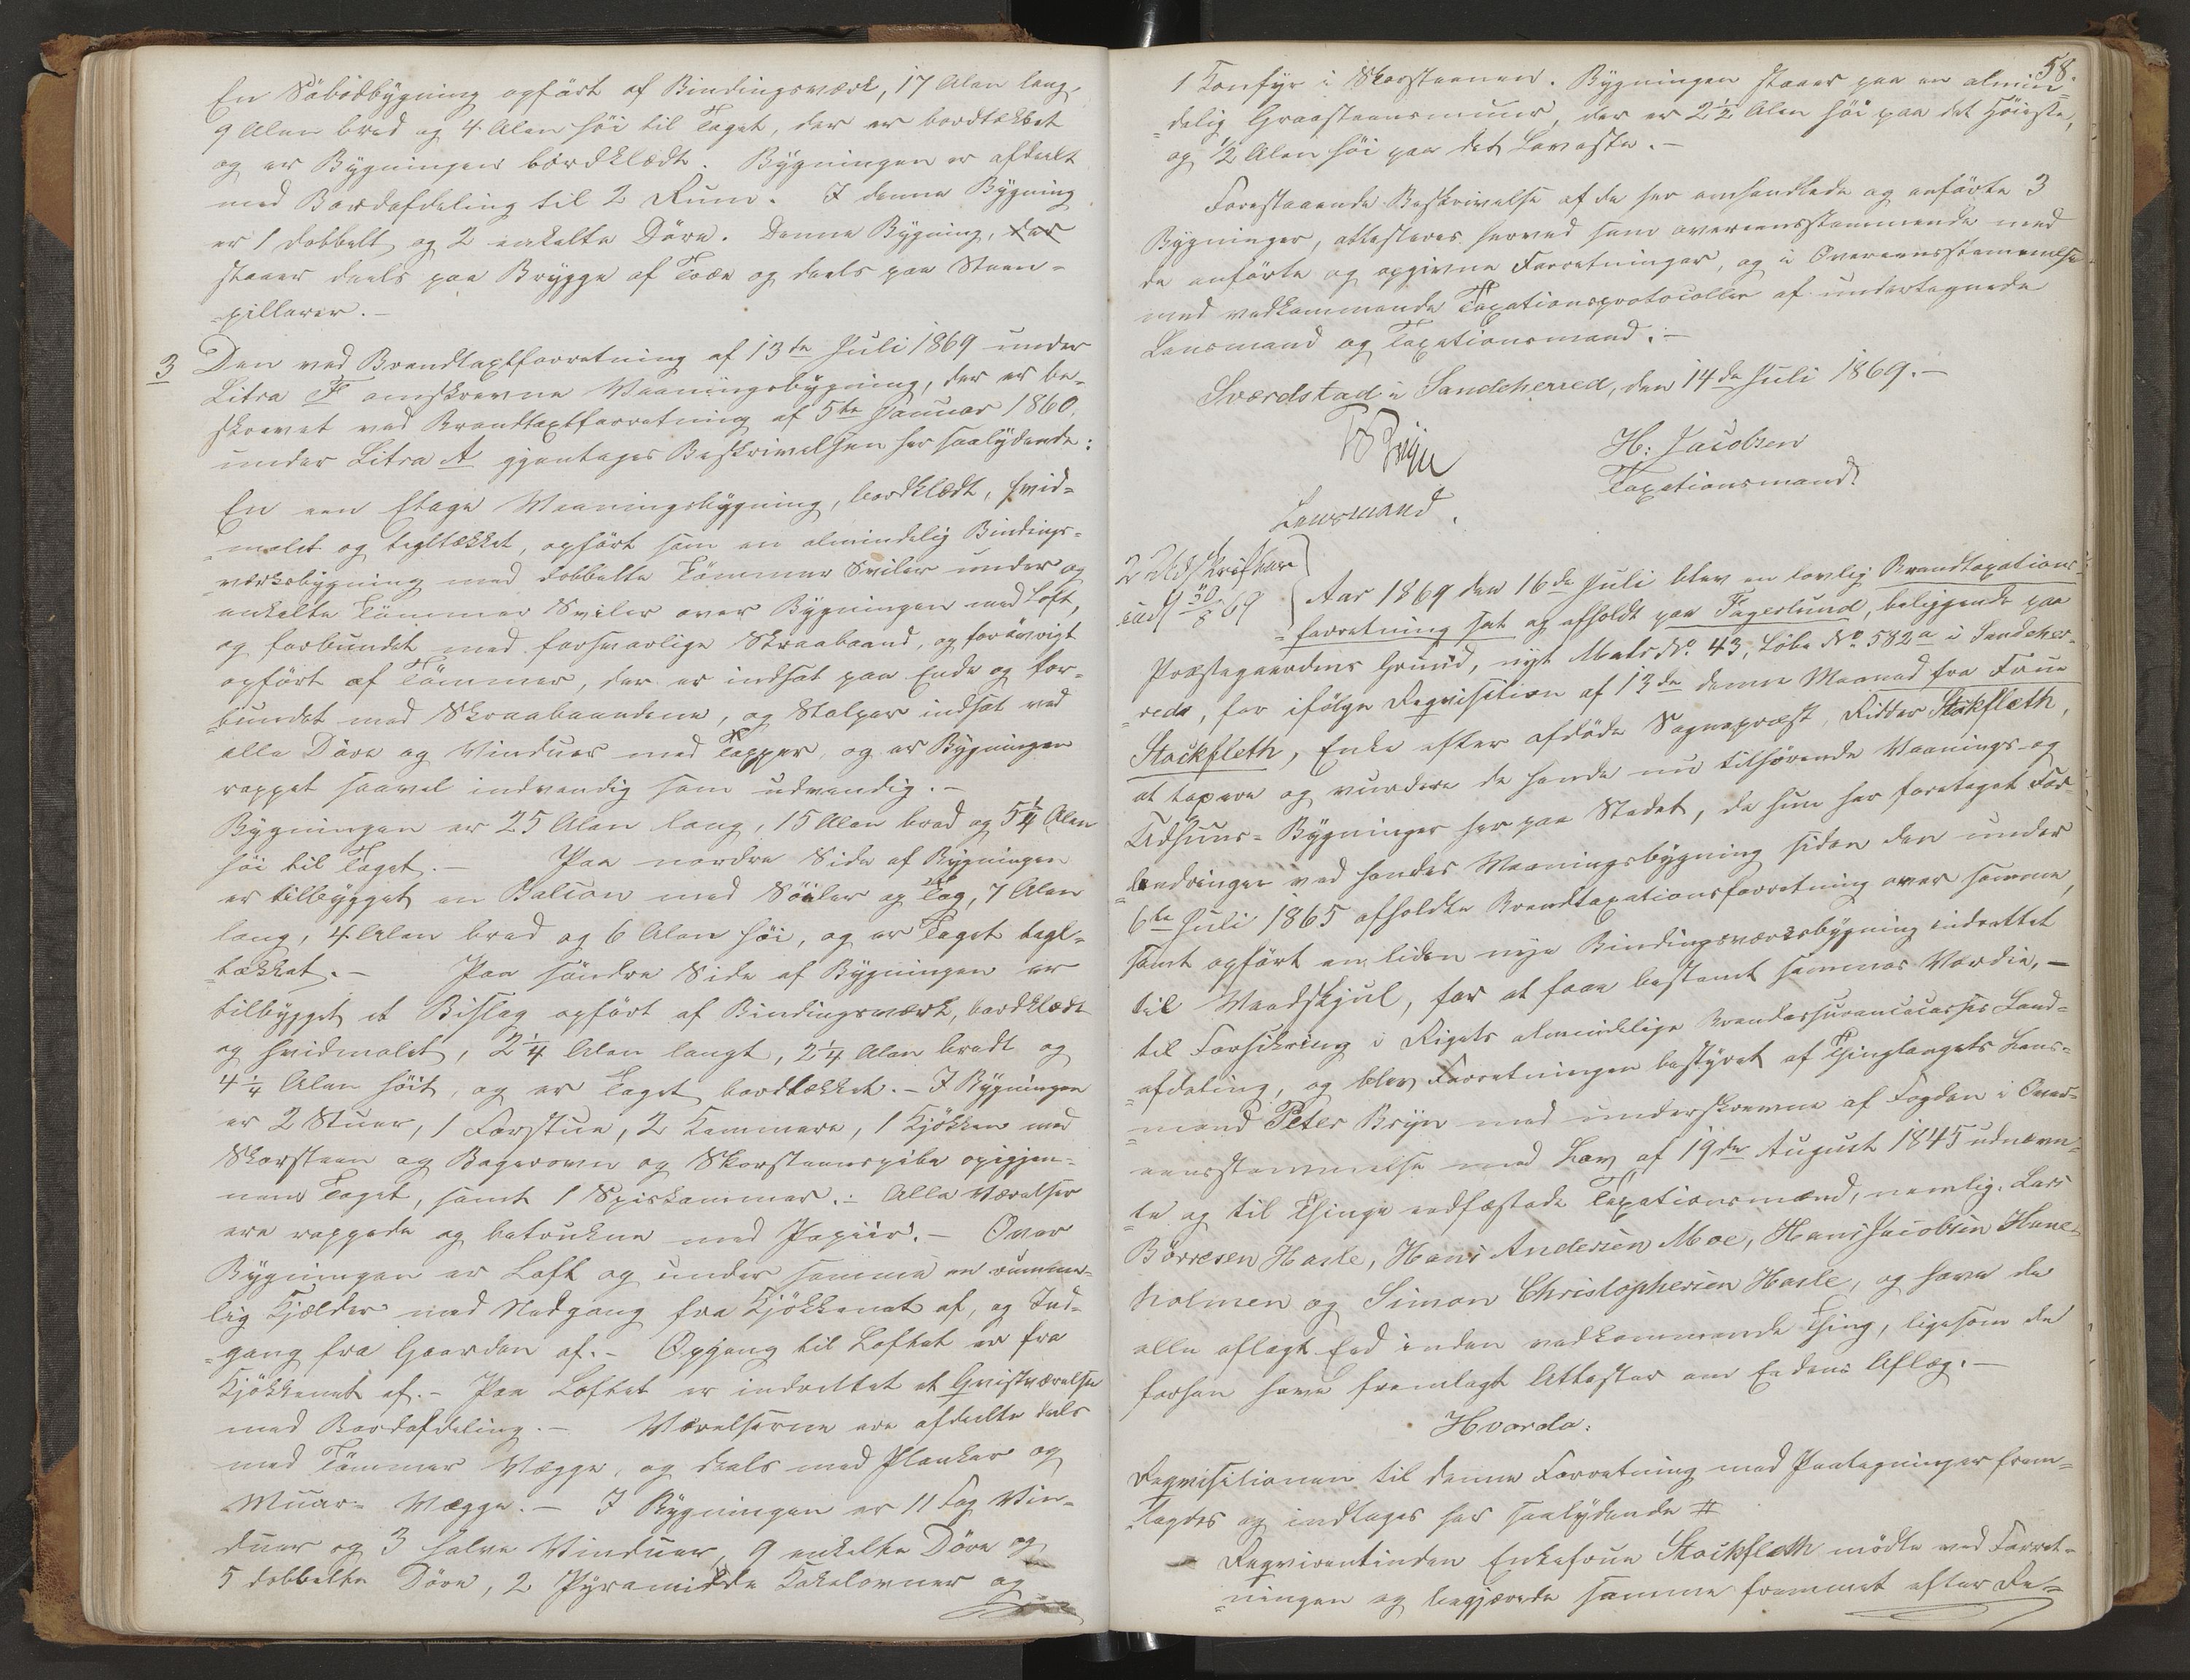 En Søbodbygning opført af Bindingsværk, 17 Alen lang,
9 Alen bred og 4 Alen høi til Taget, der er bordtækket
og er Bygningen bordklædt. Bygningen er afdeelt
med Bordafdeling til 2 Rum. I denne Bygning
er 1 dobbelt og 2 enkelte Döre. Denne Bygning, der
staaer deels paa Brygge af Træe og deels paa Steen=
=pillarer.-
3 Den ved Brandtaxtforretning af 13de Juli 1869 under
Litra F omskrevne Vaaningsbygning, der er be-
skrevet ved Brandtaxtforretning af 5te Januar 1860.
under Litra A gjentages Beskrivelsen her saalydende:
En een Etage Vaaningsbygning, bordklædt, hvid=
=malet og tegltækket, opført som en almindelig Bindings=
værksbygning med dobbelte Tømmer Sviler under og
enkelte Tømmer Sviler over Bygningen med Loft,
og forbundet med forsvarlige Skraabaand, og forøvrigt
opført af Tømmer, der er indsat paa Ende og for-
bundet med Skraabaandene, og Stolper indsat ved
alle Döre og Vinduer med Tapper, og er Bygningen
rappet saavel indvendig som udvendig.-
Bygningen er 25 Alen lang, 15 Alen bred og 5 1/4 Alen
høi til Taget.- Paa nordre Side af Bygningen
er tilbygget en Balcon med Søiler og Tag, 7 Alen
lang, 4 Alen bred og 6 Alen høi, og er Taget tegl=
=tækket.- Paa søndre Side af Bygningen er
tilbygget et Bislag opført af Bindingsværk, bordklædt
og hvidmalet, 2 1/4 Alen langt, 2 1/4 Alen bredt og
4 1/4 Alen høit, og er Taget bordtækket.- I Bygningen
er 2 Stuer, 1 Forstue, 2 Kammere, 1 Kjøkken med
Skorsteen og Bagerovn og Skorsteenspibe opigjen-
nem Taget, samt 1 Spiskammer.- Alle Værelser
ere rappede og betrukne med Papiir.- Over
Bygningen er Loft og under samme en rumme-
lig Kjælder med Nedgang fra Kjøkkenet af, og Ind=
=gang fra Gaarden af.- Opgang til Loftet er fra
Kjøkkenet af.- Paa Loftet er indrettet et Qvistværelse
med Bordafdeling.- Værelserne ere afdeelte deels
med Tømmer Vægge, og deels med Planker og
Muur= Vægge.- I Bygningen er 11 Fag Vin-
duer og 3 halve Vinduer, 9 enkelte Döre og
5 dobbelte Döre, 2 Pyramidde Kakelovner og
58.
1 Komfyr i Skorsteenen. Bygningen staaer paa en almin=
=delig Graasteensmuur, der er 2 1/2 Alen høi paa det Høieste,
og 1/2 Alen høi paa det Laveste.-
Forestaaende Beskrivelse af de her omhandlede og anførte 3
Bygninger, attesteres herved som overeensstemmende med
de anførte og opgivne Forretninger, og i Overeensstemmelse
med vedkommende Taxationsprotocoller af undertegnede
Lensmand og Taxationsmand.-
Sværdstad i Sandeherred, den 14de Juli 1869.-
P Bryn H: Jacobsen
Lensmand. Taxationsmand.
2 30/8 69
Aar 1869 den 16de Juli blev en lovlig Brandtaxations=
=forretning sat og afholdt paa Fagerlund, beliggende paa
Præstegaardens Grund, nyt Matr No 43, Løbe No 582a i Sandeher=
=red, for ifølge Reqvisition af 13de denne Maaned fra Frue
Stockfleth, Enke efter afdöde Sognepræst, Ridder Stockfleth,
at taxere og vurdere de hende nu tilhørende Vaanings- og
Udhuus= Bygninger her paa Stedet, da hun har foretaget For=
=andringer ved hendes Vaaningsbygning siden den under
6te Juli 1865 afholdte Brandtaxationsforretning over samme,
samt opført en liden nye Bindingsværksbygning indrettet
til Vaadskjul, for at faae bestemt sammes Værdie,-
til Forsikring i Rigets almindelige Brandassurancecasses Land=
=afdeling, og blev Forretningen bestyret af Thinglaugets Lens=
=mand Peter Bryn med underskrevne af Fogden i Over=
eensstemmelse med Lov af 19de August 1845 udnævn=
=te og til Thinge eedfæstede Taxationsmænd, nemlig: Lars
Börresen Hasle, Hans Andersen Moe, Hans Jacobsen Hane=
holmen og Simon Christophersen Hasle, og have de
alle aflagt Eed inden vedkommende Thing, ligesom de
forhen have fremlagt Attester om Eedens Aflæg.-
Hvorda:
Reqvisitionen til denne Forretning med Paategninger frem=
=lagdes og indtages her saalydende #
Reqvirentinden Enkefrue Stockfleth mødte ved Forret=
=ningen og begjærede samme fremmet efter Re=